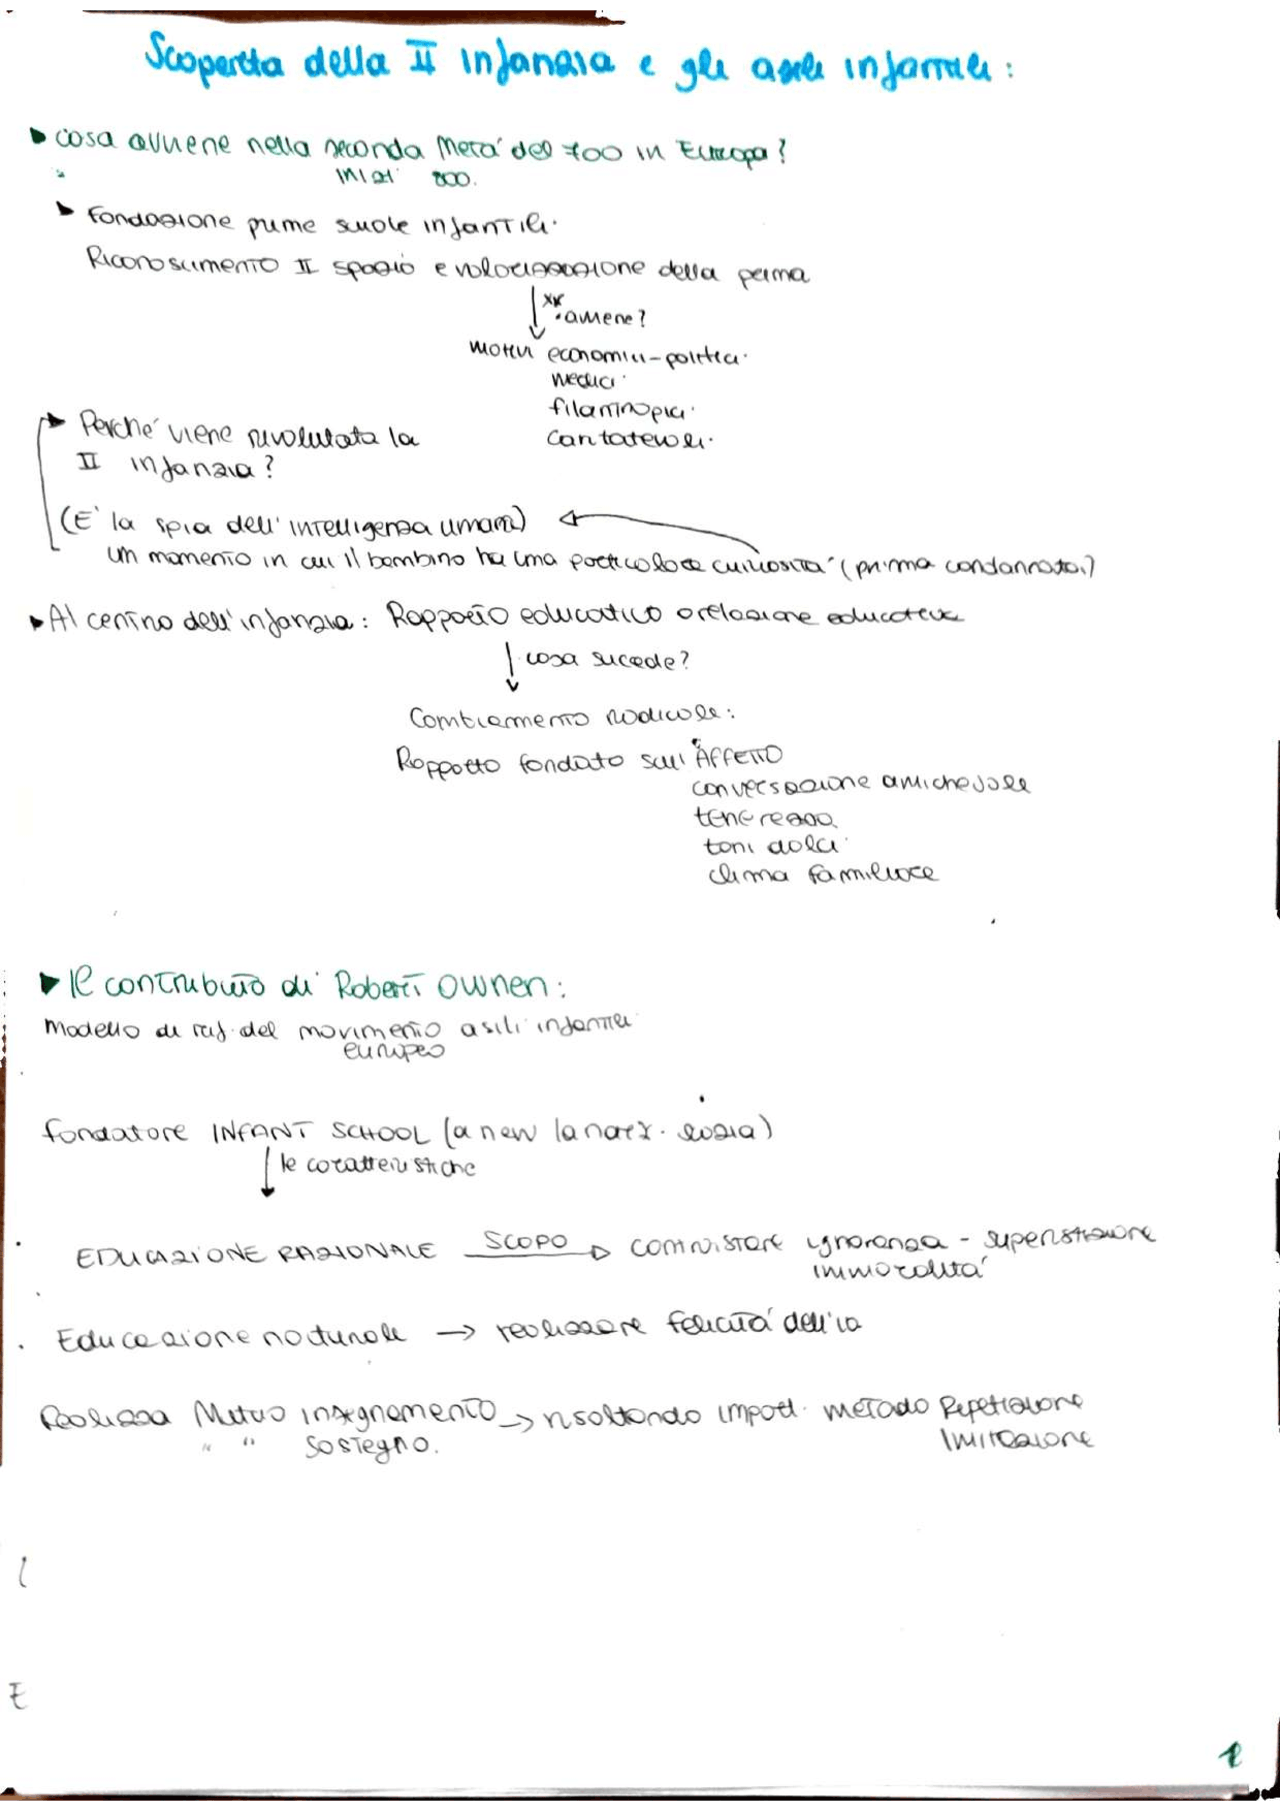 Scoperta della II infanzia e gli asili infantili:
cosa avviene nella seconda metà del 700 in Europa?
inizi 800.
Fondazione prime scuole infantili.
Riconoscimento II spazio e valorizzazione della prima
xk
avviene?
motivi economici-politici.
medici.
filantropici.
caritatevoli.
Perché viene rivalutata la
II infanzia?
(E' la spia dell'intelligenza umana)
un momento in cui il bambino ha una particolare curiosità (prima condannata)
Al centro dell'infanzia: Rapporto educativo o relazione educativa
cosa sucede?
Cambiamento radicale:
Rapporto fondato sull'AFFETTO
conversazione amichevole
tenerezza
toni dolci
clima familiare
Il contributo di Robert Ownen:
Modello di rif. del movimento asili infantili
europeo
fondatore INFANT SCHOOL (a new lanark.
le caratteristiche
EDUCAZIONE RAZIONALE SCOPO contrastare ignoranza - superstizione
immoralità
Educazione naturale → realizzare felicità dell'
Realizza Mutuo insegnamento → risaltando import. metodo Ripetizione
" " sostegno. Imitazione
1